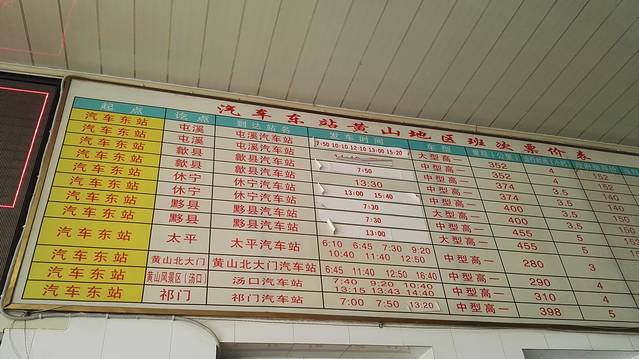 汽车东站黄山地区班次票价表
起点 讫点 到达站名 发车时间 车型
汽车东站 屯溪 屯溪汽车站 7:50 10:10 12:10 13:00 15:20 大型高一 352 4
汽车东站 屯溪 屯溪汽车站 中型高一 352 4
汽车东站 歙县 歙县汽车站 7:50 中型高一 374 3.5
汽车东站 歙县 歙县汽车站 13:30 中型高一 374 3.5
汽车东站 休宁 休宁汽车站 13:00 15:40 中型高一 400 3.5
汽车东站 休宁 休宁汽车站 7:30 大型高一 400 3.5
汽车东站 黟县 黟县汽车站 7:30 中型高一 455 5
汽车东站 黟县 黟县汽车站 13:00 大型高一 455 5
汽车东站 太平 太平汽车站 6:10 6:45 7:30 9:20 10:40 11:40 12:50 中型高一 280 3
汽车东站 黄山北大门 黄山北大门汽车站 6:45 11:40 12:50 16:40 中型高一 290 4
汽车东站 黄山风景区(汤口) 汤口汽车站 7:40 9:20 10:40 13:15 13:43 14:40 中型高一 310 4
汽车东站 祁门 祁门汽车站 7:00 7:50 13:20 中型高一 398 5